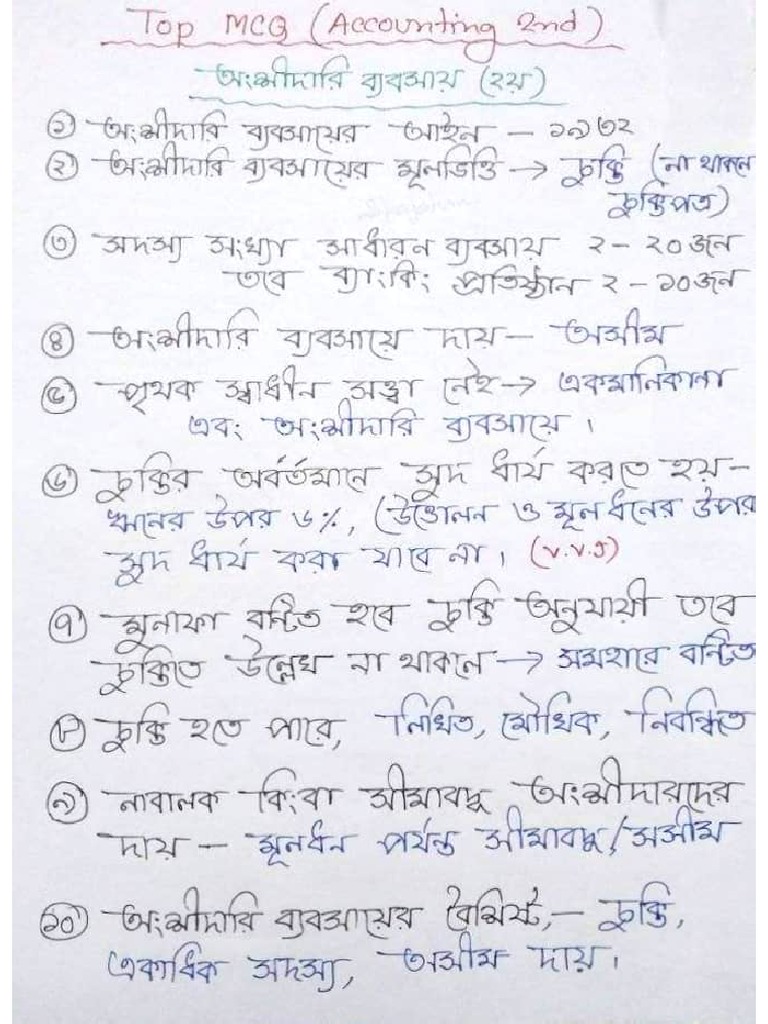 Top MCQ (Accounting 2nd)
অংশীদারি ব্যবসায় (২য়)
① অংশীদারি ব্যবসায়ের আইন – ১৯৩২
② অংশীদারি ব্যবসায়ের মূলভিত্তি → চুক্তি (না থাকলে
চুক্তিপত্র)
③ সদস্য সংখ্যা সাধারন ব্যবসায় ২ – ২০ জন
তবে ব্যাংকিং প্রতিষ্ঠান ২ – ১০ জন
④ অংশীদারি ব্যবসায়ে দায় – অসীম
⑤ পৃথক স্বাধীন সত্ত্বা নেই → একমালিকানা
এবং অংশীদারি ব্যবসায়ে।
⑥ চুক্তির অবর্তমানে সুদ ধার্য করতে হয় –
ঋনের উপর ৬%, (উত্তোলন ও মূলধনের উপর
সুদ ধার্য করা যাবে না। (v.v.I)
⑦ মুনাফা বন্টিত হবে চুক্তি অনুযায়ী তবে
চুক্তিতে উল্লেখ না থাকলে → সমহারে বন্টিত
⑧ চুক্তি হতে পারে, লিখিত, মৌখিক, নিবন্ধিত
⑨ নাবালক কিংবা সীমাবদ্ধ অংশীদারদের
দায় – মূলধন পর্যন্ত সীমাবদ্ধ/সসীম
⑩ অংশীদারি ব্যবসায়ের বৈশিষ্ট্য, – চুক্তি,
একাধিক সদস্য, অসীম দায়।